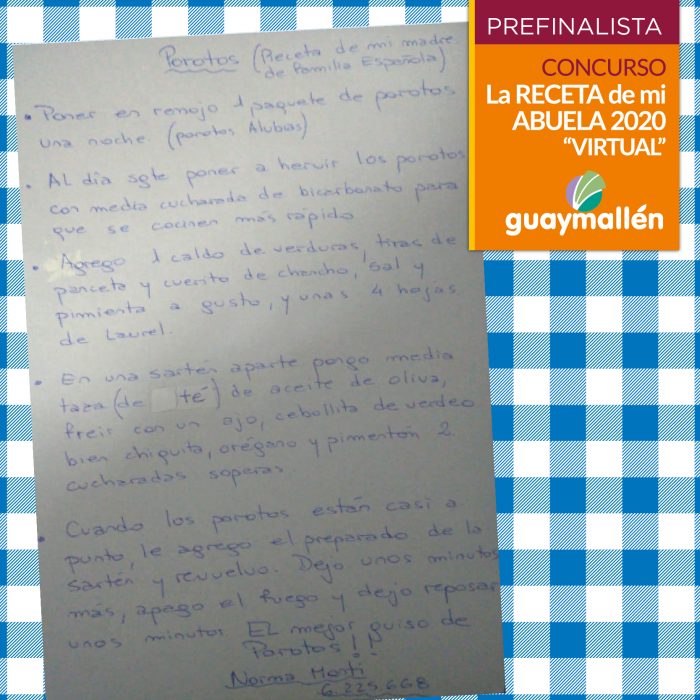 PREFINALISTA
CONCURSO
La RECETA de mi
ABUELA 2020
“VIRTUAL”
guaymallén
Porotos (Receta de mi madre
de Familia Española)
• Poner en remojo 1 paquete de porotos
una noche. (porotos Alubias)
• AL día sgte poner a hervir los porotos
con media cucharada de bicarbonato para
que se cocinen más rápido.
• Agrego 1 caldo de verduras, tiras de
panceta y cuerito de chancho, sal y
pimienta a gusto, y unas 4 hojas
de Laurel.
• En una sartén aparte pongo media
taza (de té) de aceite de oliva,
freir con un ajo, cebollita de verdeo
bien chiquita, orégano y pimentón 2
cucharadas soperas
• Cuando los porotos están casi a
punto, le agrego el preparado de la
sartén y revuelvo. Dejo unos minutos
más, apago el fuego y dejo reposar
unos minutos. EL mejor guiso de
Porotos!!
Norma
6.225.668